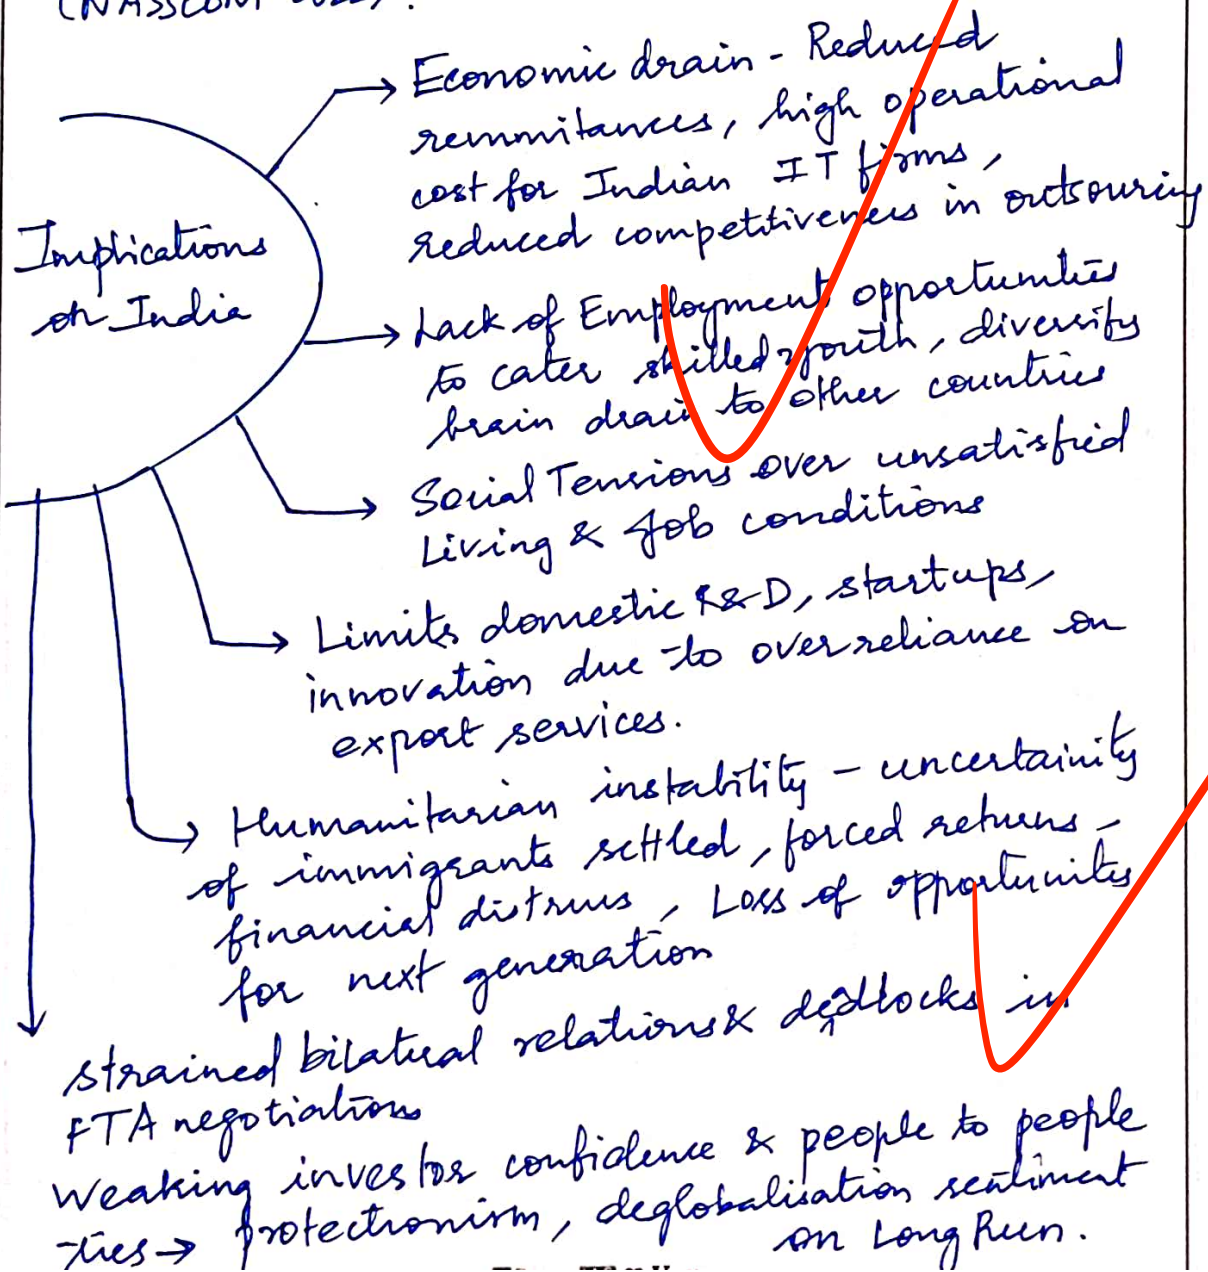 (NASSCOM
Economic drain - Reduced
remmitances, high operational
cost for Indian IT firms,
reduced competitiveness in outsouring
Implications
on India
Lack of Employment opportunities
to cater skilled youth, diversify
brain drain to other countries
Social Tensions over unsatisfied
Living & Job conditions
Limits domestic R&D, startups,
innovation due to over reliance on
export services.
Humanitarian instability - uncertainity
of immigrants settled, forced returns -
financial distress, Loss of opportunities
for next generation
strained bilateral relations & deadlocks in
FTA negotiations
Weaking investor confidence & people to people
ties → protectionism, deglobalisation sentiment
on Long Run.